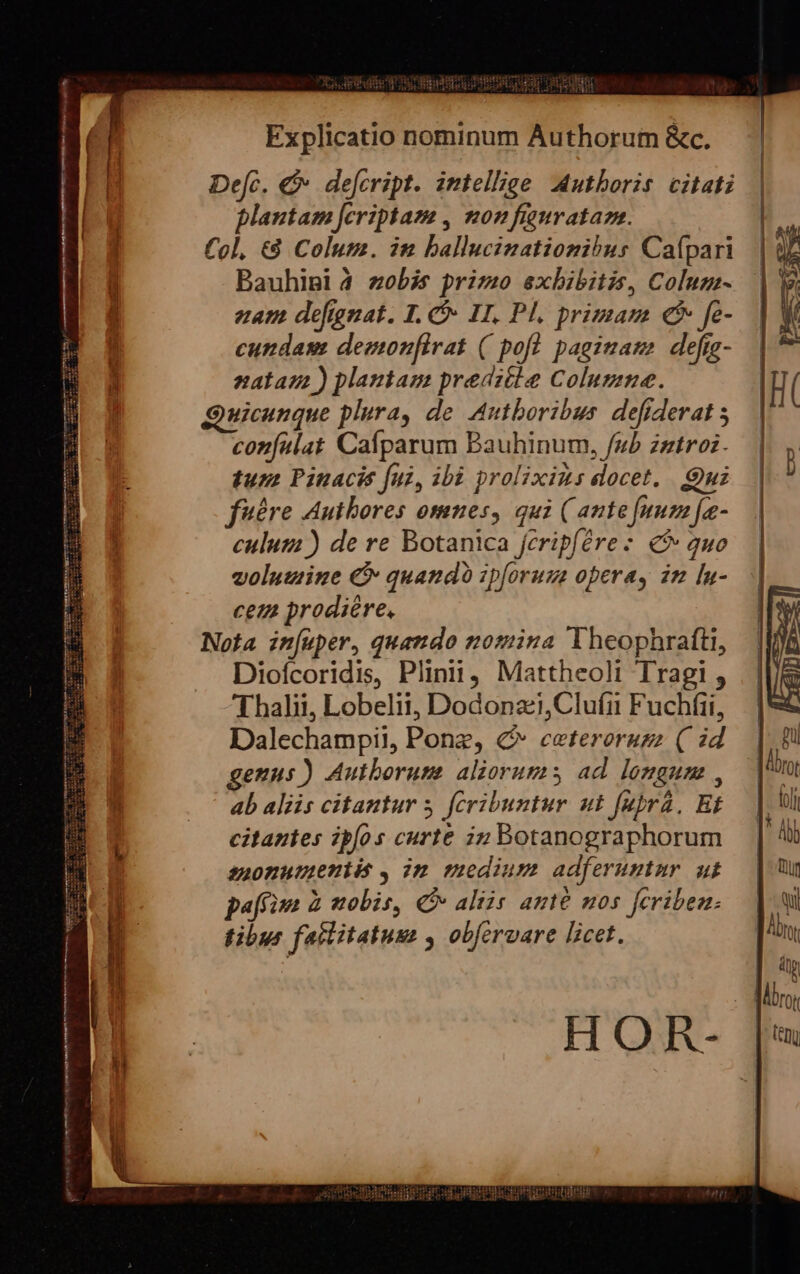 Explicatio nominum Authorum &c.
Deſc. & deſcript. intellige Authoris citati
plantam ſcriptam, non figuratam.
Col. & Colum. in hallucinationibus Caſpari
Bauhini à nobis primo exhibitis, Colum-
nam deſignat. I. & II. Pl. primam & ſe-
cundam demonſtrat ( poſt paginam deſig-
natam ) plantam prædictæ Columnæ.
Quicunque plura, de Authoribus deſiderat;
conſulat Caſparum Bauhinum, ſub introi-
tum Pinacis ſui, ibi prolixiùs docet. Qui
fuêre Authores omnes, qui ( ante ſuum ſæ-
culum ) de re Botanica ſcripſêre: & quo
volumine & quandò ipſorum opera, in lu-
cem prodiêre.
Nota inſuper, quando nomina Theophraſti,
Dioſcoridis, Plinii, Mattheoli Tragi,
Thalii, Lobelii, Dodonæi, Cluſii Fuchſii,
Dalechampii, Ponæ, & cæterorum ( id
genus ) Authorum aliorum; ad longum,
ab aliis citantur; ſcribuntur ut ſuprà. Et
citantes ipſos curtè in Botanographorum
monumentis, in medium adferuntur ut
paſſim à nobis, & aliis antè nos ſcriben-
tibus factitatum, obſervare licet.
HOR-